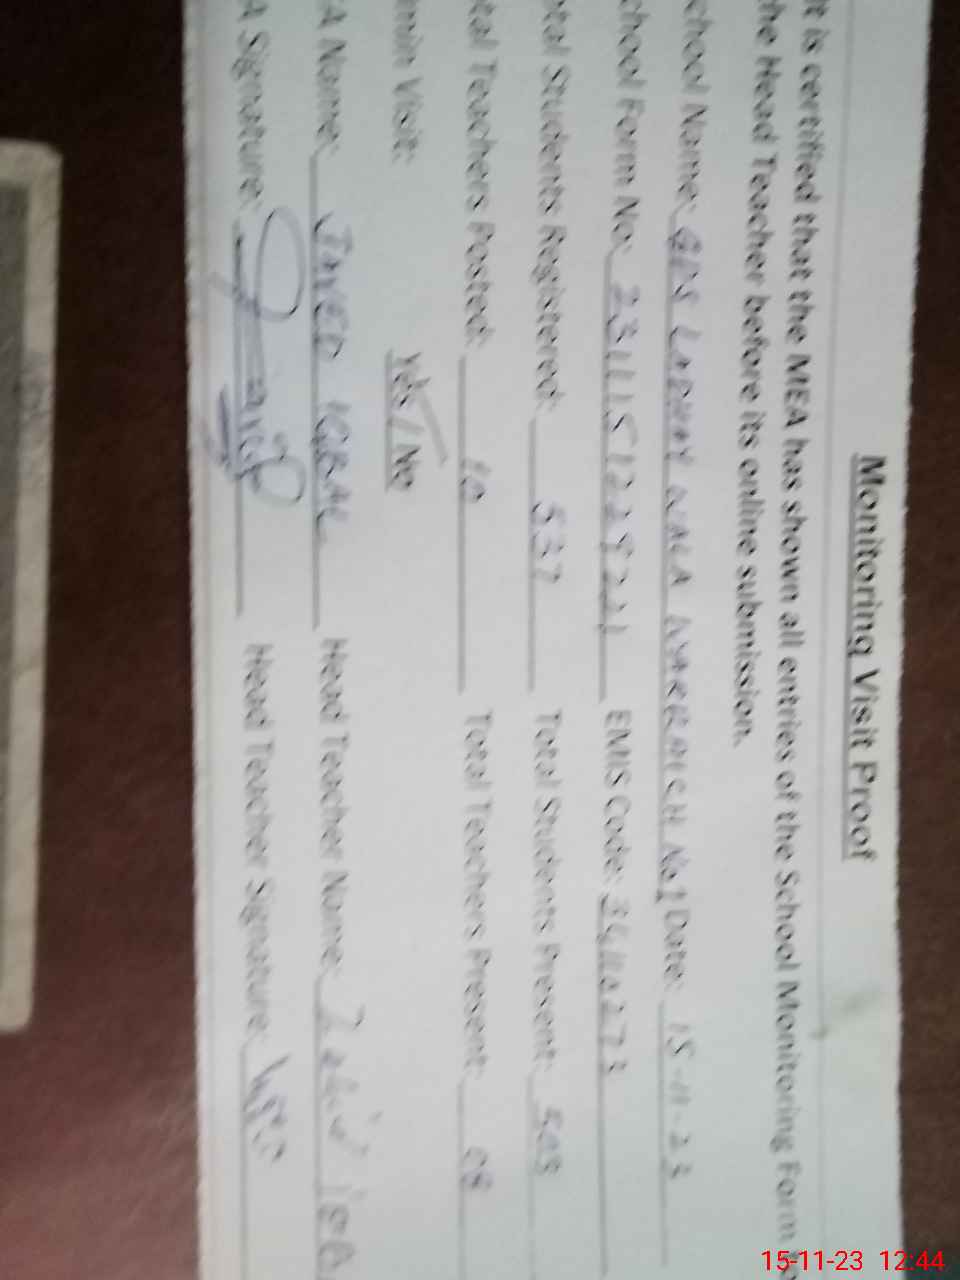 Monitoring Visit Proof
It is certified that the MEA has shown all entries of the School Monitoring Form to
the Head Teacher before its online submission.
chool Name: GPS LADHAY WALA WARRAICH No.1 Date: 15-11-23
chool Form No: EMIS Code:
otal Students Registered: 537 Total Students Present: 503
tal Teachers Posted: 10 Total Teachers Present: 08
min Visit: Yes / No
A Name: JAVED IQBAL Head Teacher Name:
A Signature: Head Teacher Signature:
15-11-23 12:44